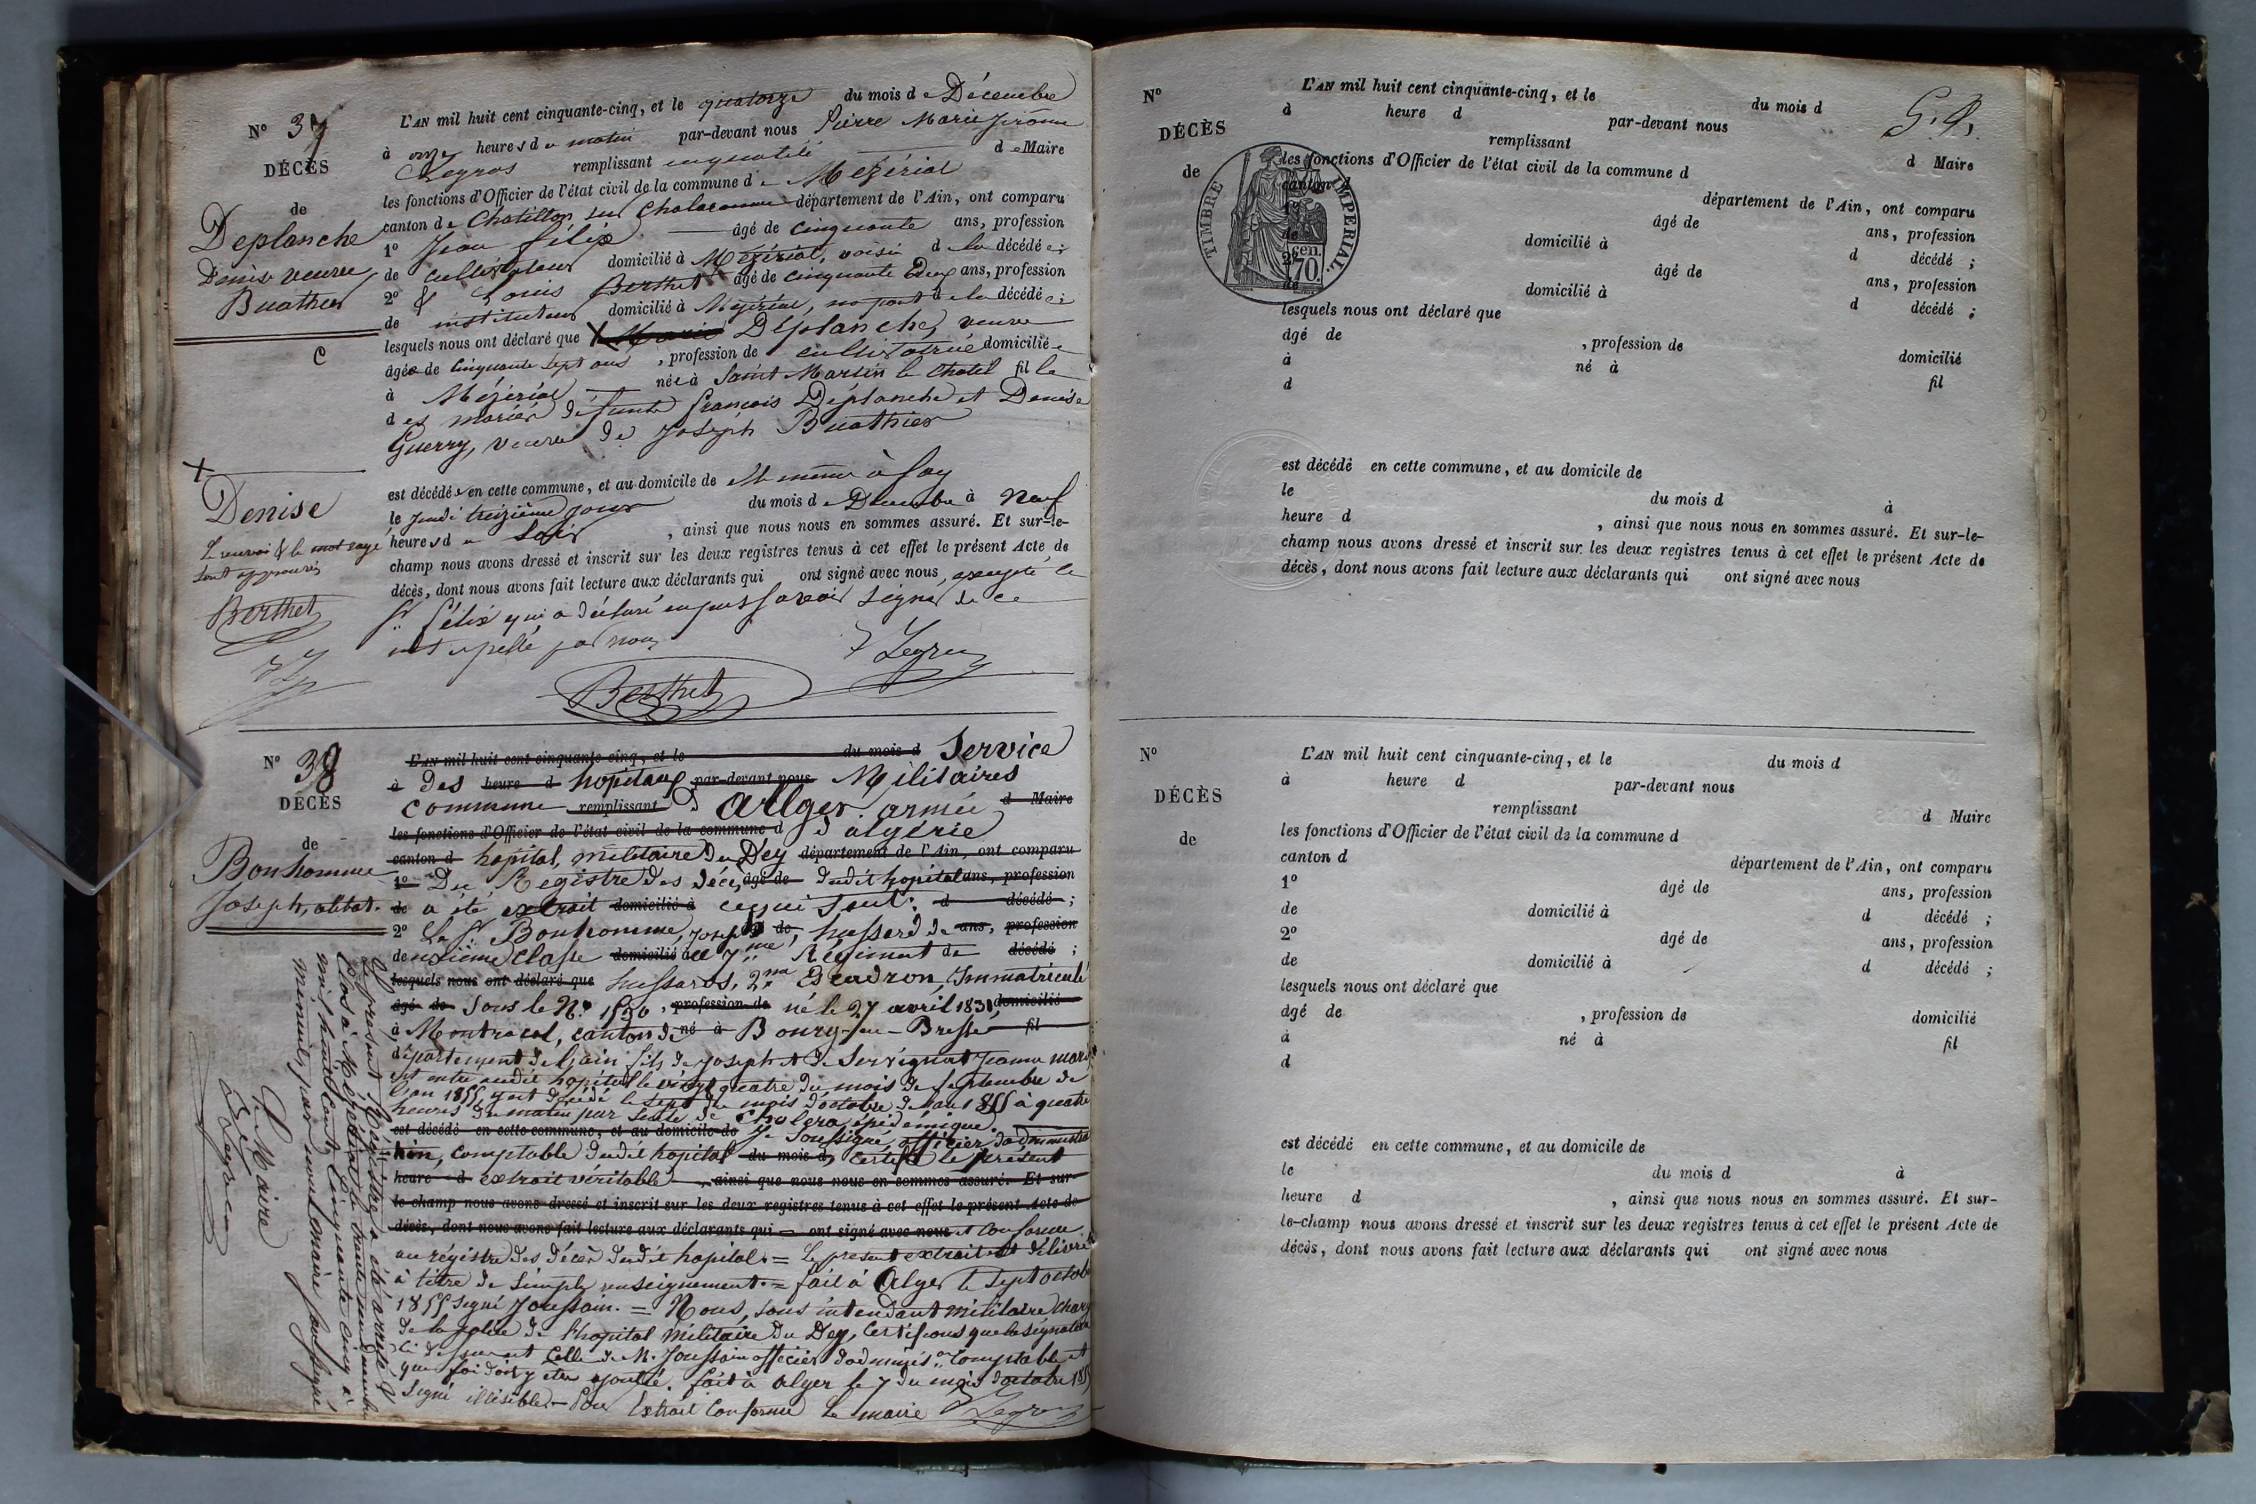 N° 37
DÉCÈS
de
Deplanche
Denise veuve
Buathier
C
L'AN mil huit cent cinquante-cinq, et le quatorze du mois de Décembre
à onze heures du matin par-devant nous Pierre Marie Jérôme
Legros remplissant en qualité de Maire
les fonctions d'Officier de l'état civil de la commune de Mézériat
canton de Chatillon sur Chalaronne département de l'Ain, ont comparu
1° Jean Félix âgé de cinquante ans, profession
de cultivateur domicilié à Mézériat, voisin de la décédée;
2° & Louis Berthet âgé de cinquante deux ans, profession
de instituteur domicilié à Mézériat, non parent de la décédée;
lesquels nous ont déclaré que X Marie Déplanche, veuve
âgée de cinquante sept ans, profession de cultivatrice domiciliée
à Mézériat née à Saint Martin le Chatel fille
des mariés défunts françois Déplanche et Denise
Guerry, veuve de Joseph Buathier
est décédée en cette commune, et au domicile de elle même à Say
le jeudi treizième jour du mois de Décembre à neuf
heures du soir, ainsi que nous nous en sommes assuré. Et sur-le-
champ nous avons dressé et inscrit sur les deux registres tenus à cet effet le présent Acte de
décès, dont nous avons fait lecture aux déclarants qui ont signé avec nous, excepté le
Sr Félix qui a déclaré ne pas savoir signer de ce
interpellé par nous
Berthet
Legros
X
Denise
Le renvoi & le mot rayé
sont approuvés
Berthet
N° 38
DÉCÈS
de
Bonhomme
Joseph, célibat.
L'AN mil huit cent cinquante-cinq, et le du mois d Service
à des heure d hopitaux par-devant nous Militaires
Commune remplissant d'Alger. armée d Maire
les fonctions d'Officier de l'état civil de la commune d d'algérie
canton d hopital, militaire du Dey département de l'Ain, ont comparu
1° Du Registre des décès âgé de dudit hopital ans, profession
de a été extrait domicilié à ce qui suit: d décédé;
2° Le Sr Bonhomme, Joseph âgé de, hussard de ans, profession
deuxième classe domicilié à au 7me Régiment de décédé;
lesquels nous ont déclaré que hussards, 2me Escadron, Immatriculé
âgé de Sous le N° 1530, profession de né le 27 avril 1831, domicilié
à Montracol, canton de né à Bourg-en-Bresse, fil
département de l'ain fils de Joseph et de Servignat Jeanne marie
est entré audit hopital le vingt quatre du mois de septembre de
l'an 1855, y est décédé le sept du mois d'octobre de l'an 1855 à quatre
heures du matin par suite de Cholera épidémique.
est décédé en cette commune, et au domicile de Je soussigné officier d'administra
tion, comptable dudit hopital du mois d certifie le présent
heure d extrait véritable, ainsi que nous nous en sommes assuré. Et sur
le-champ nous avons dressé et inscrit sur les deux registres tenus à cet effet le présent Acte de
décès, dont nous avons fait lecture aux déclarants qui ont signé avec nous et conforme
au régistre des décès dudit hopital. = Le présent extrait est délivré
à titre de simple renseignement. = fait à Alger le sept octob
1855 signé Joussain. = Nous, sous intendant militaire charg
de la police de l'hopital militaire du Dey, Certifions que la signature
ci dessus est celle de M. Joussain officier d'adminis.on comptable et
que foi doit y etre ajoutée. fait à Alger le 7 du mois d'octobre 1855
Signé illisible - Pour Extrait Conforme Le maire Legros
Le présent Régistre a été arrêté &
clos à Mézériat le trente un décembre
mil huit cent cinquante cinq à
minuit, par nous maire soussigné
Le Maire
Legros
G. P.
N°
DÉCÈS
de
TIMBRE IMPÉRIAL.
70 cen.
L'AN mil huit cent cinquante-cinq, et le du mois d
à heure d par-devant nous
remplissant d Maire
les fonctions d'Officier de l'état civil de la commune d
canton d département de l'Ain, ont comparu
1° âgé de ans, profession
de domicilié à d décédé;
2° âgé de ans, profession
de domicilié à d décédé;
lesquels nous ont déclaré que
âgé de , profession de domicilié
à né à fil
d
est décédé en cette commune, et au domicile de
le du mois d à
heure d , ainsi que nous nous en sommes assuré. Et sur-le-
champ nous avons dressé et inscrit sur les deux registres tenus à cet effet le présent Acte de
décès, dont nous avons fait lecture aux déclarants qui ont signé avec nous
N°
DÉCÈS
de
L'AN mil huit cent cinquante-cinq, et le du mois d
à heure d par-devant nous
remplissant d Maire
les fonctions d'Officier de l'état civil de la commune d
canton d département de l'Ain, ont comparu
1° âgé de ans, profession
de domicilié à d décédé;
2° âgé de ans, profession
de domicilié à d décédé;
lesquels nous ont déclaré que
âgé de , profession de domicilié
à né à fil
d
est décédé en cette commune, et au domicile de
le du mois d à
heure d , ainsi que nous nous en sommes assuré. Et sur-
le-champ nous avons dressé et inscrit sur les deux registres tenus à cet effet le présent Acte de
décès, dont nous avons fait lecture aux déclarants qui ont signé avec nous